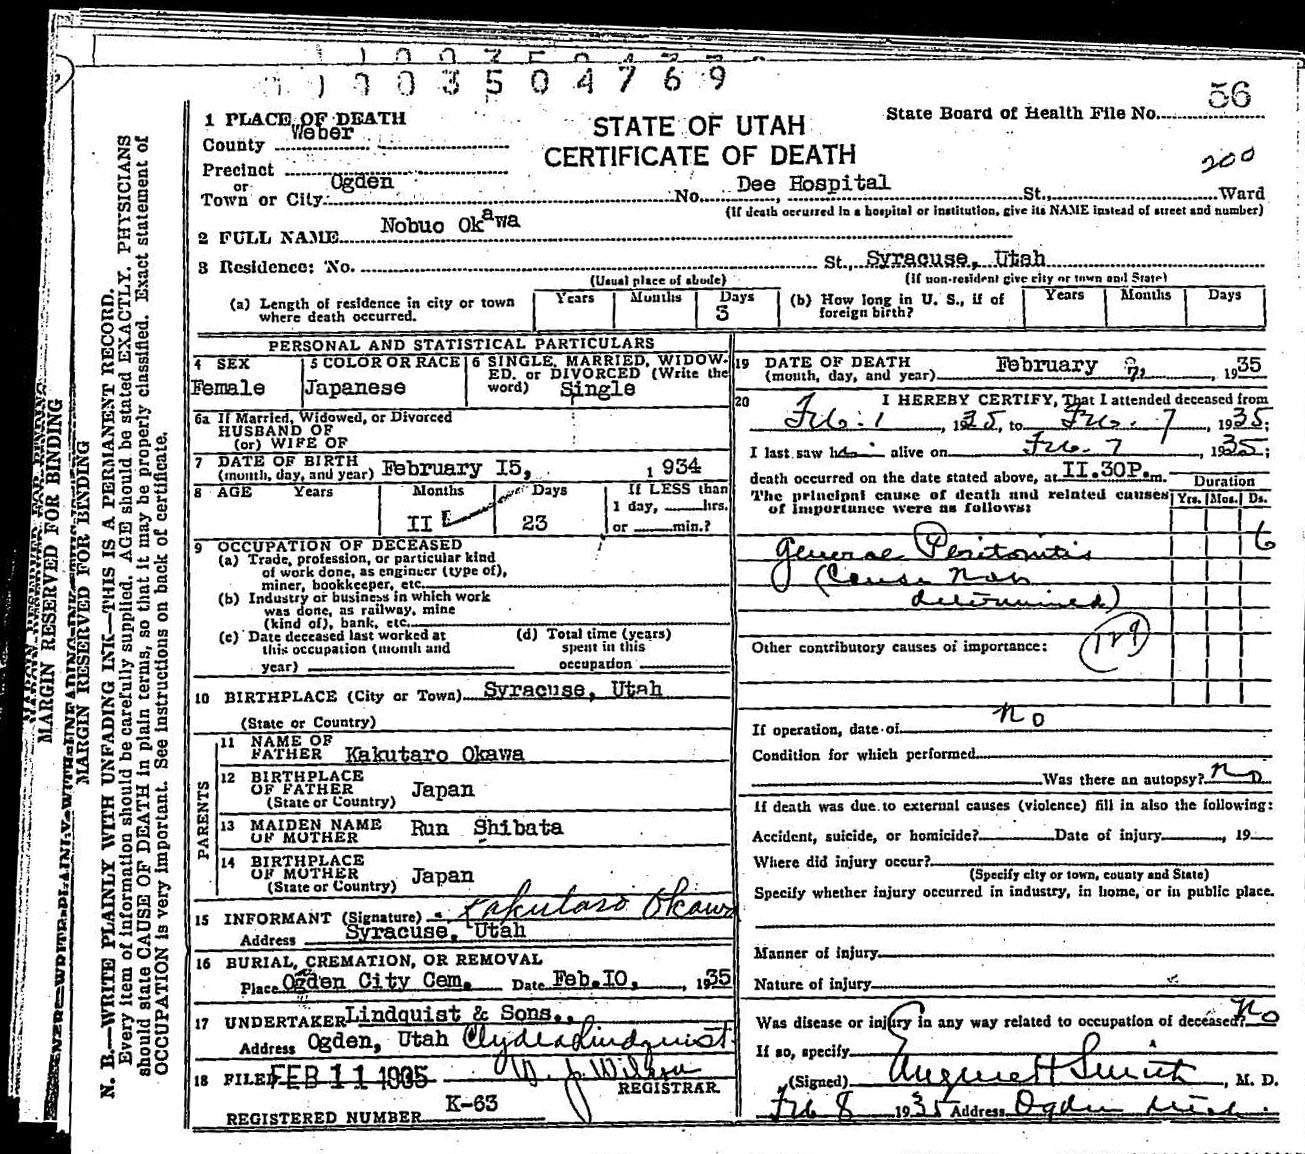 1 0 0 3 5 0 4 7 6 9
56
State Board of Health File No.
STATE OF UTAH
CERTIFICATE OF DEATH
200
1 PLACE OF DEATH
County Weber
Precinct
or
Town or City Ogden No. Dee Hospital St., Ward
(If death occurred in a hospital or institution, give its NAME instead of street and number)
2 FULL NAME Nobuo Okawa
3 Residence: No. St., Syracuse, Utah
(Usual place of abode) (If non-resident give city or town and State)
(a) Length of residence in city or town where death occurred. Years Months Days 3
(b) How long in U. S., if of foreign birth? Years Months Days
PERSONAL AND STATISTICAL PARTICULARS
4 SEX Female
5 COLOR OR RACE Japanese
6 SINGLE, MARRIED, WIDOWED, or DIVORCED (Write the word) Single
6a If Married, Widowed, or Divorced
HUSBAND OF
(or) WIFE OF
7 DATE OF BIRTH
(month, day, and year) February I5, 1934
8 AGE Years Months II Days 23
If LESS than
1 day, hrs.
or min.?
9 OCCUPATION OF DECEASED
(a) Trade, profession, or particular kind
of work done, as engineer (type of),
miner, bookkeeper, etc.
(b) Industry or business in which work
was done, as railway, mine
(kind of), bank, etc.
(c) Date deceased last worked at
this occupation (month and
year)
(d) Total time (years)
spent in this
occupation
10 BIRTHPLACE (City or Town) Syracuse, Utah
(State or Country)
PARENTS
11 NAME OF
FATHER Kakutaro Okawa
12 BIRTHPLACE
OF FATHER Japan
(State or Country)
13 MAIDEN NAME
OF MOTHER Run Shibata
14 BIRTHPLACE
OF MOTHER Japan
(State or Country)
15 INFORMANT (Signature) Kakutaro Okawa
Address Syracuse, Utah
16 BURIAL, CREMATION, OR REMOVAL
Place Ogden City Cem. Date Feb.IO, 1935
17 UNDERTAKER Lindquist & Sons.,
Address Ogden, Utah Clyde Lindquist
18 FILED FEB 11 1935 W. J. Wilson
REGISTRAR
REGISTERED NUMBER K-63
19 DATE OF DEATH
(month, day, and year) February 7, 1935
20 I HEREBY CERTIFY, That I attended deceased from
Feb. 1, 1935, to Feb. 7, 1935;
I last saw h alive on Feb. 7, 1935;
death occurred on the date stated above, at II.30P.m.
The principal cause of death and related causes
of importance were as follows:
Duration
Yrs. Mos. Ds.
General Peritonitis 6
(Cause not
determined)
129
Other contributory causes of importance:
If operation, date of No
Condition for which performed
Was there an autopsy? No
If death was due to external causes (violence) fill in also the following:
Accident, suicide, or homicide? Date of injury, 19
Where did injury occur?
(Specify city or town, county and State)
Specify whether injury occurred in industry, in home, or in public place.
Manner of injury
Nature of injury
Was disease or injury in any way related to occupation of deceased? No
If so, specify
(Signed) Eugene H Smith, M. D.
Feb 8 1935 Address Ogden Utah.
MARGIN RESERVED FOR BINDING
MARGIN RESERVED FOR BINDING
N. B.—WRITE PLAINLY WITH UNFADING INK—THIS IS A PERMANENT RECORD.
Every item of information should be carefully supplied. AGE should be stated EXACTLY. PHYSICIANS
should state CAUSE OF DEATH in plain terms, so that it may be properly classified. Exact statement of
OCCUPATION is very important. See instructions on back of certificate.